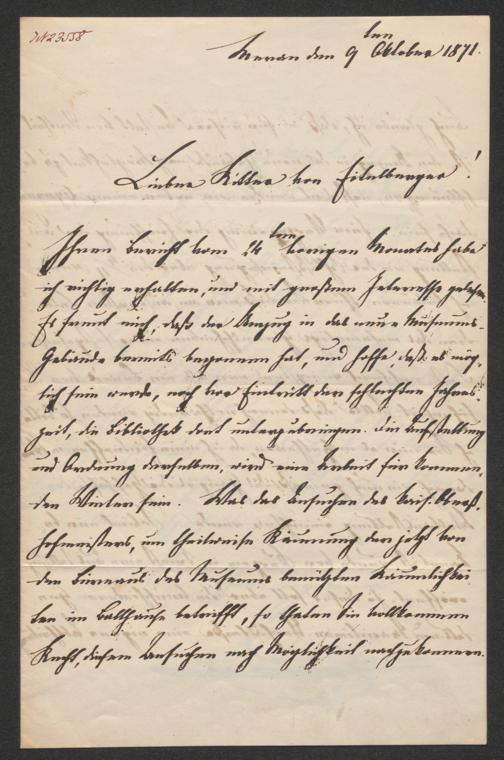 IN 23558
Meran den 9ten Oktober 1871.
Lieber Ritter von Eitelberger!
Ihren Bericht vom 24ten vorigen Monates habe
ich richtig erhalten, und mit großem Interesse gelesen.
Es freut mich, daß der Umzug in das neue Museums-
Gebäude bereits begonnen hat, und hoffe, daß es mög-
lich sein werde, noch vor Eintritt der schlechten Jahres-
zeit, die Bibliothek dort unterzubringen. Die Aufstellung
und Ordnung derselben, wird eine Arbeit für kommen-
den Winter sein. Was das Ansuchen des kais. Oberst-
hofmeisters, um theilweise Räumung der jetzt von
den Bureaus des Museums benützten Räumlichkei-
ten im Ballhause betrifft, so thaten Sie vollkommen
Recht, diesem Ansuchen nach Möglichkeit nachzukommen.